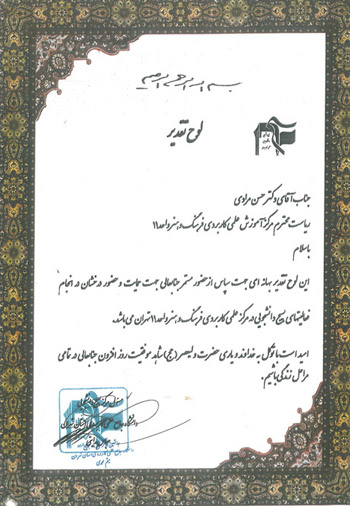 بسم الله الرحمن الرحیم
لوح تقدیر
جناب آقای دکتر حسن مرادی
ریاست محترم مرکز آموزش علمی کاربردی فرهنگ و هنر واحد ۱۱
باسلام
این لوح تقدیر بهانه ای جهت سپاس از حضور مستمر جنابعالی جهت حمایت و حضور درخشان در انجام
فعالیتهای بسیج دانشجویی در مرکز علمی کاربردی فرهنگ و هنر واحد ۱۱ تهران می باشد.
امید است با توکل به خداوند و یاری حضرت ولیعصر (عج) شاهد موفقیت روز افزون جنابعالی در تمامی
مراحل زندگی باشیم.